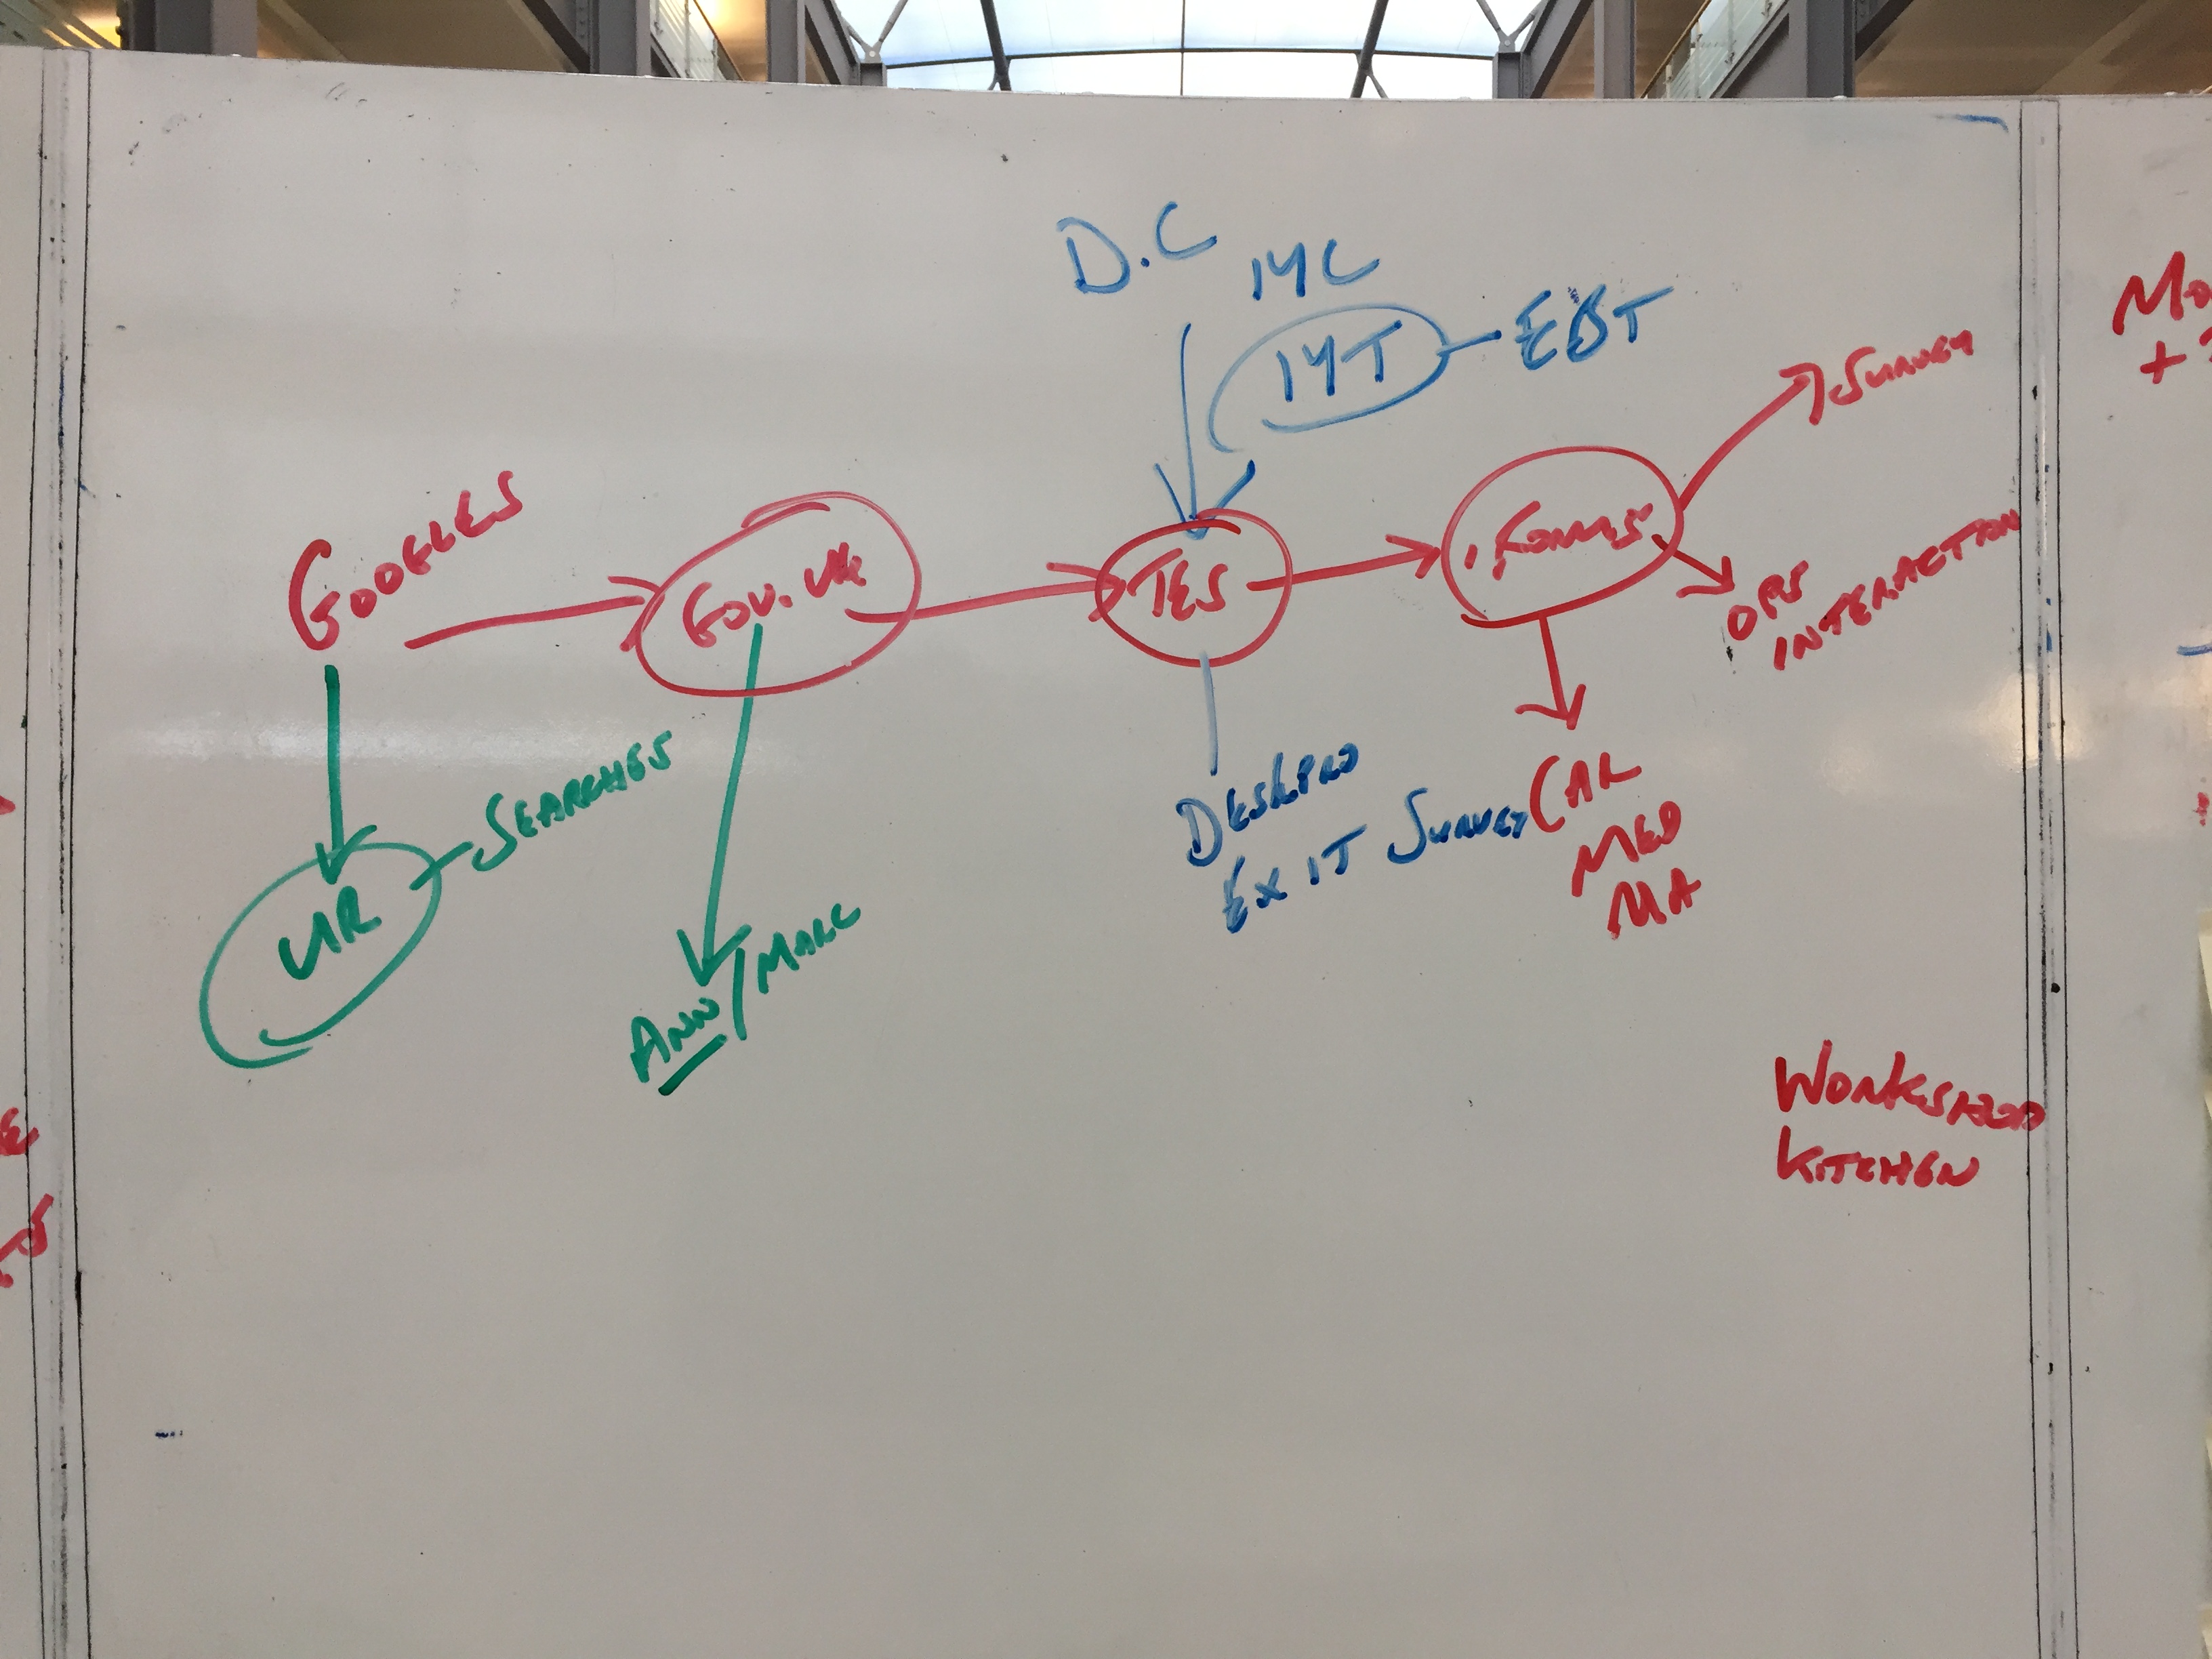 D.C
IYC
IYT
EBT
SURVEY
GOOGLES
GOV.UK
TES
iFORMS
OPS
INTERACTION
SEARCHES
UR
ANN/MARC
DESKPRO
EXIT SURVEY
CAR
MED
MA
WORKSHOP
KITCHEN